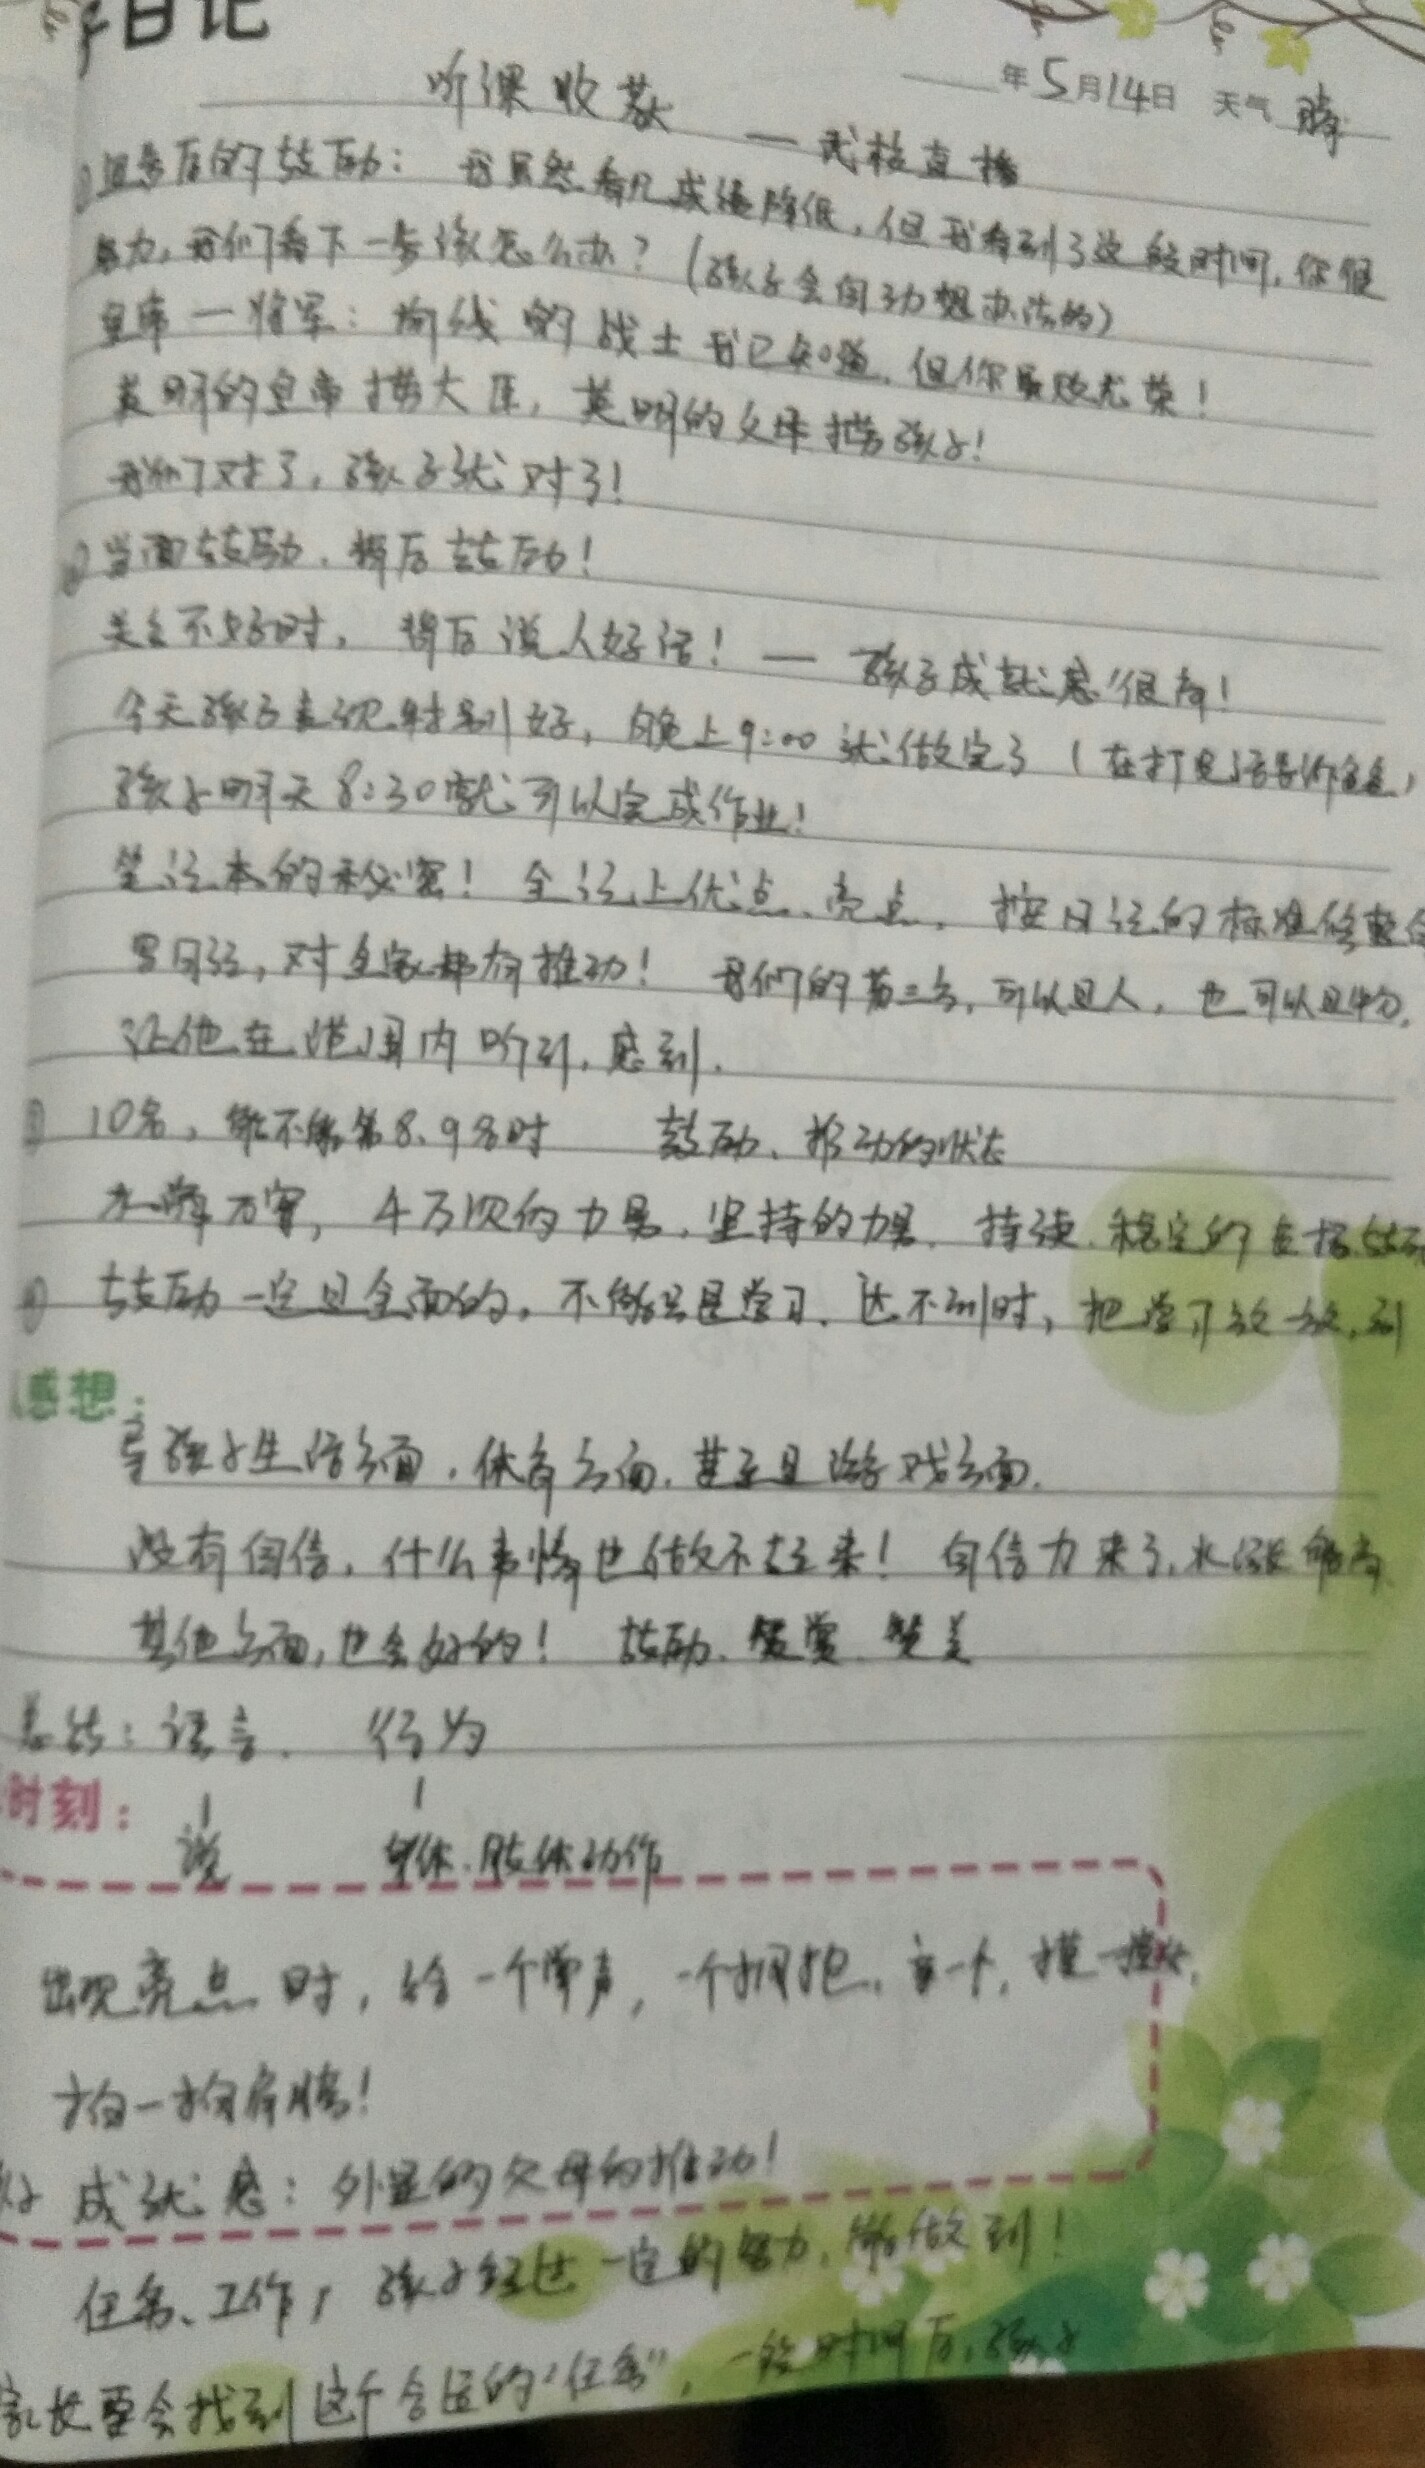 日记
年5月14日 天气 晴
听课收获
—武校直播
后的鼓励：我虽然看见成绩降低，但我看到了这段时间，你很
努力，我们看下一步该怎么办？（孩子会自动想办法的）
皇帝一将军：前线的战士我已知道，但你虽败尤荣！
英明的皇帝捧大臣，英明的父母捧孩子！
我们对了，孩子就对了！
当面鼓励，背后鼓励！
关系不好时，背后说人好话！— 孩子成就感很高！
今天孩子表现特别好，晚上9:00就做完了（在打电话给你爸爸）
孩子明天8:30就可以完成作业！
笔记本的秘密！全记上优点、亮点，按日记的标准修整
写日记，对全家都有推动！我们的第三方，可以是人，也可以是物，
让他在范围内听到，感到。
③ 10名，能不能第8、9名时 鼓励、推动的状态
水滴石穿，4万次的力量，坚持的力量，持续、稳定的
④ 鼓励一定是全面的，不能只是学习，达不到时，把学习放一放，到
感想：
孩子生活方面，体育方面，甚至是游戏方面。
没有自信，什么事情也做不起来！自信力来了，水涨船高
其他方面，也会好的！鼓励、赞赏、赞美
总结：语言、行为
时刻：
说 身体、肢体动作
出现亮点时，给一个掌声，一个拥抱，亲一个，摸一摸头，
拍一拍肩膀！
成就感：外显的父母的推动！
任务、工作，孩子经过一定的努力，能做到！
家长要会找到这个合适的“任务”，一段时间后，孩子